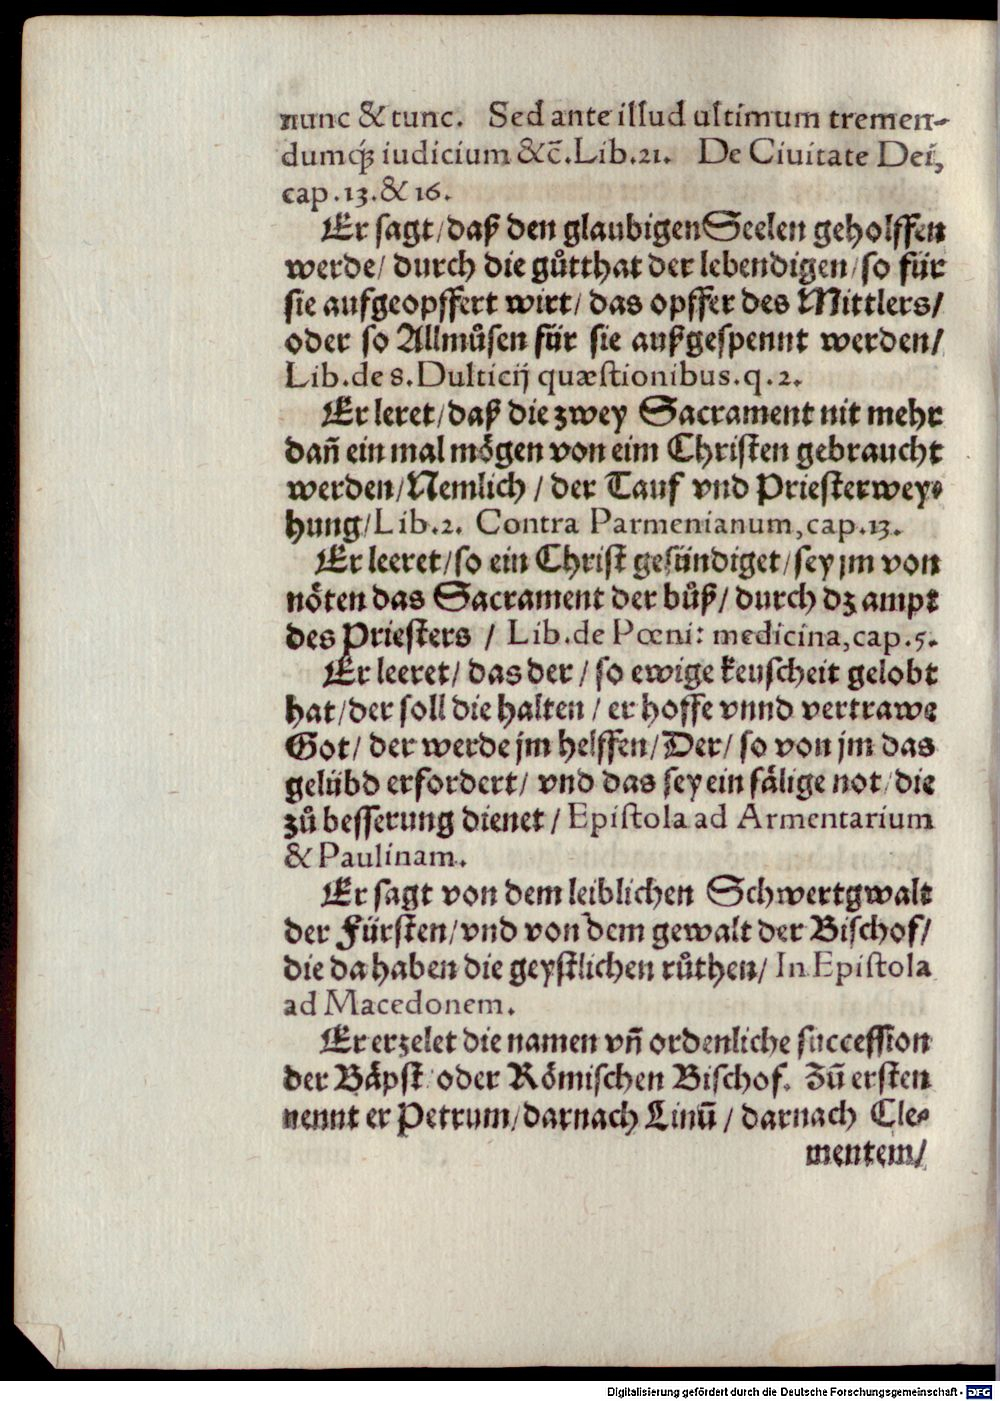 nunc & tunc. Sed ante illud ultimum tremen-
dumq́ꝫ iudicium &c̄. Lib. 21. De Ciuitate Dei,
cap. 13. & 16.
Er sagt/ daß den glaubigen Seelen geholffen
werde/ durch die gůtthat der lebendigen/ so für
sie aufgeopffert wirt/ das opffer des Mittlers/
oder so Allmůsen für sie außgespennt werden/
Lib. de 8. Dulticij quæstionibus. q. 2.
Er leret/ daß die zwey Sacrament nit mehr
dañ ein mal mögen von eim Christen gebraucht
werden/ Nemlich/ der Tauf vnd Priesterwey⸗
hung/ Lib. 2. Contra Parmenianum, cap. 13.
Er leeret/ so ein Christ gesündiget/ sey jm von
nöten das Sacrament der bůß/ durch dz ampt
des Priesters / Lib. de Pœni: medicina, cap. 5.
Er leeret/ das der/ so ewige keuscheit gelobt
hat/ der soll die halten/ er hoffe vnnd vertrawe
Got/ der werde jm helffen/ Der/ so von jm das
gelübd erfordert/ vnd das sey ein sälige not/ die
zů besserung dienet/ Epistola ad Armentarium
& Paulinam.
Er sagt von dem leiblichen Schwertgwalt
der Fürsten/ vnd von dem gewalt der Bischof/
die da haben die geystlichen růthen/ In Epistola
ad Macedonem.
Er erzelet die namen vñ ordenliche succession
der Bäpst oder Römischen Bischof. Zů ersten
nennt er Petrum/ darnach Linū / darnach Cle⸗
mentem/
Digitalisierung gefördert durch die Deutsche Forschungsgemeinschaft - DFG